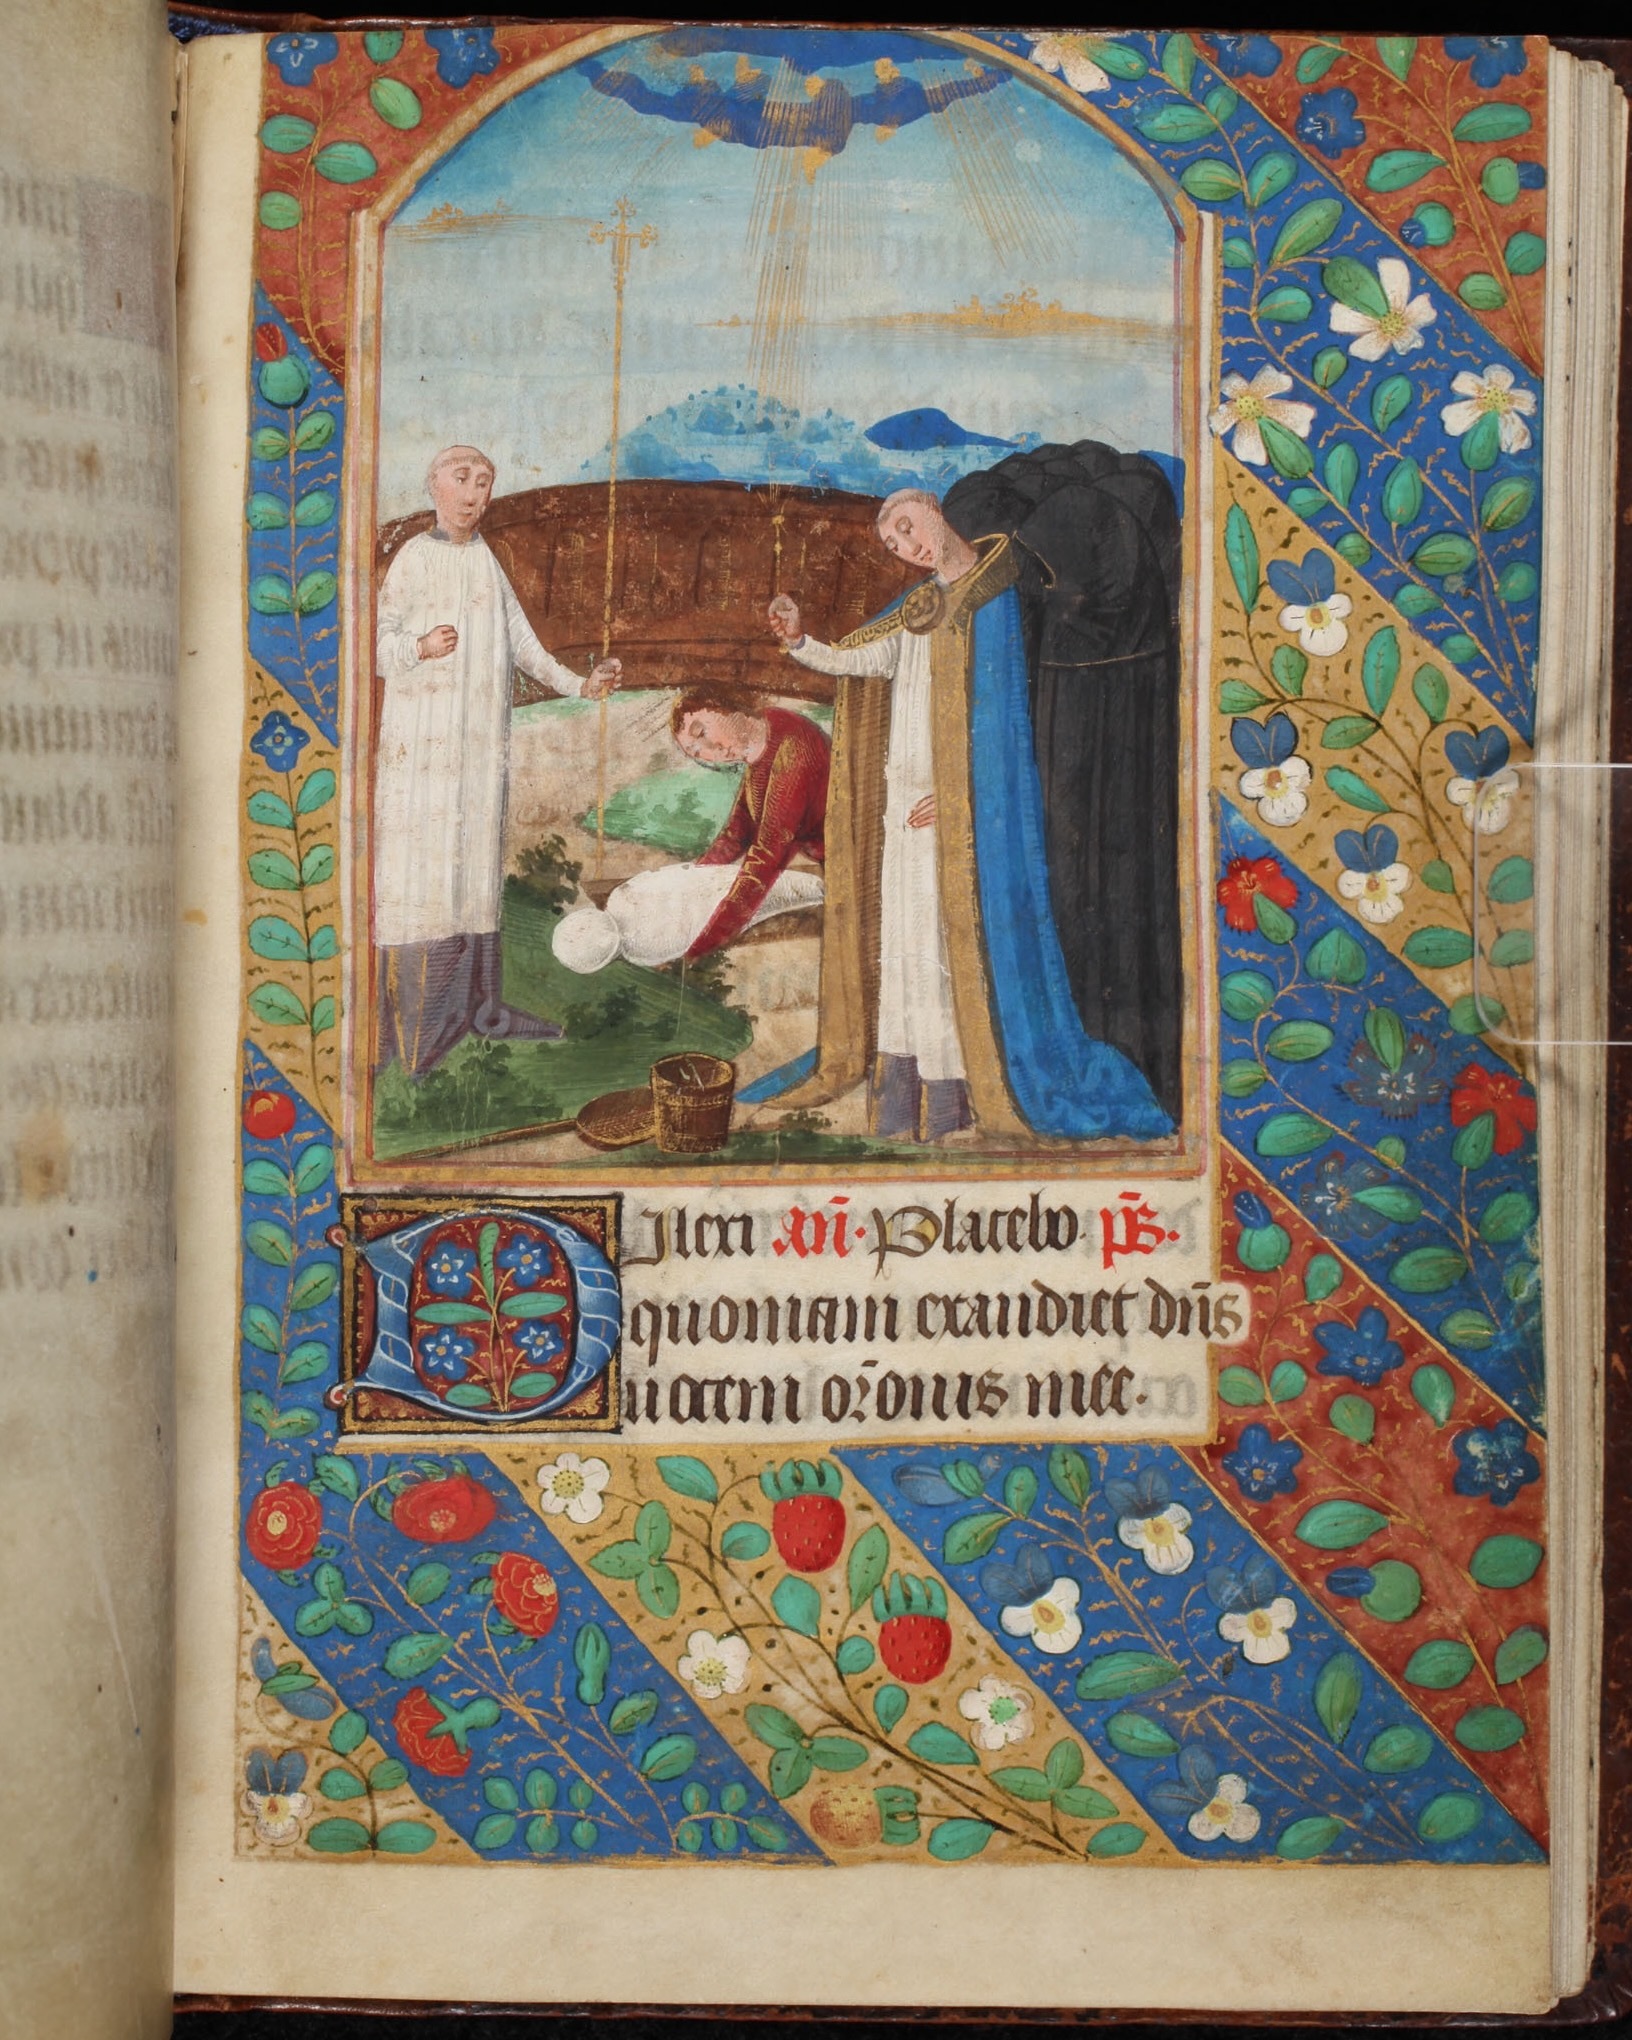 Dilexi añ. Placebo. p̄s.
quoniam exaudiet dn̄s
uocem or̄onis mee.